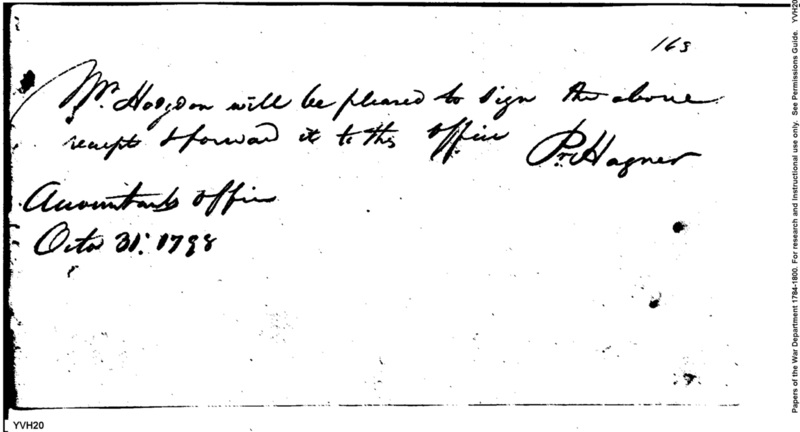 163
Mr. Hodgdon will be pleased to sign the above
receipt & forward it to this office
Pr. Hagner
Accountants Office
Octo 31. 1798
YVH20
Papers of the War Department 1784-1800. For research and instructional use only. See Permissions Guide. YVH20